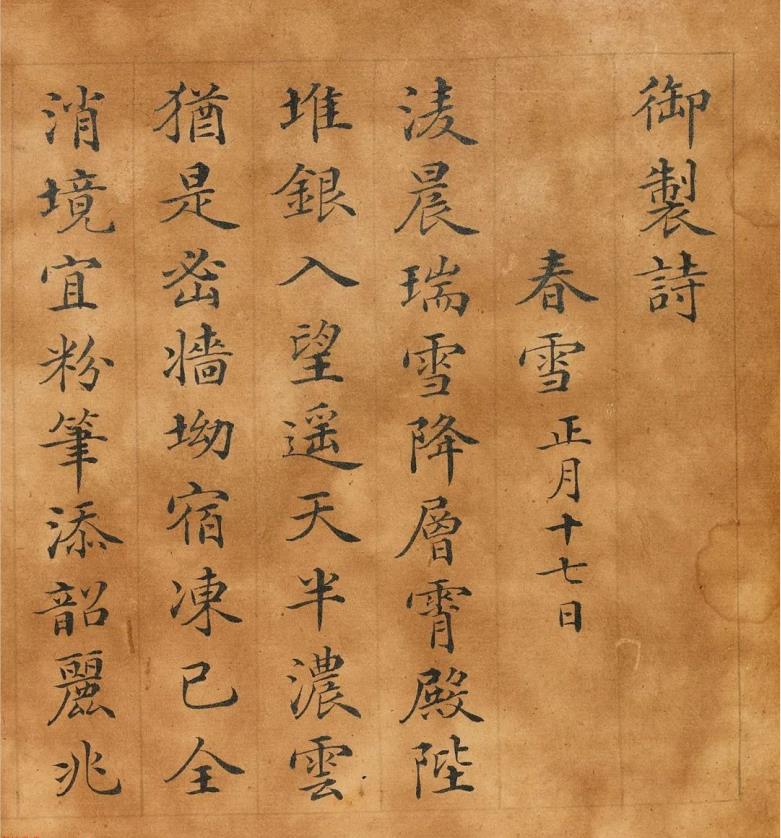 御製詩
春雪正月十七日
淩晨瑞雪降層霄殿陛
堆銀入望遥天半濃雲
猶是宻牆坳宿凍已全
消境宜粉筆添韶麗兆